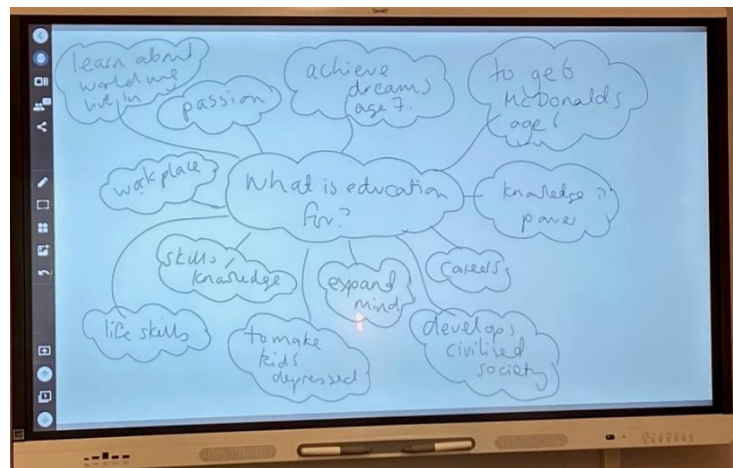 learn about
world we
live in
passion
achieve
dreams
age 7.
to get
McDonalds
age 6
workplace
What is education
for?
knowledge is
power
skills/
knowledge
expand
mind
careers
life skills
to make
kids
depressed
develops
civilised
society